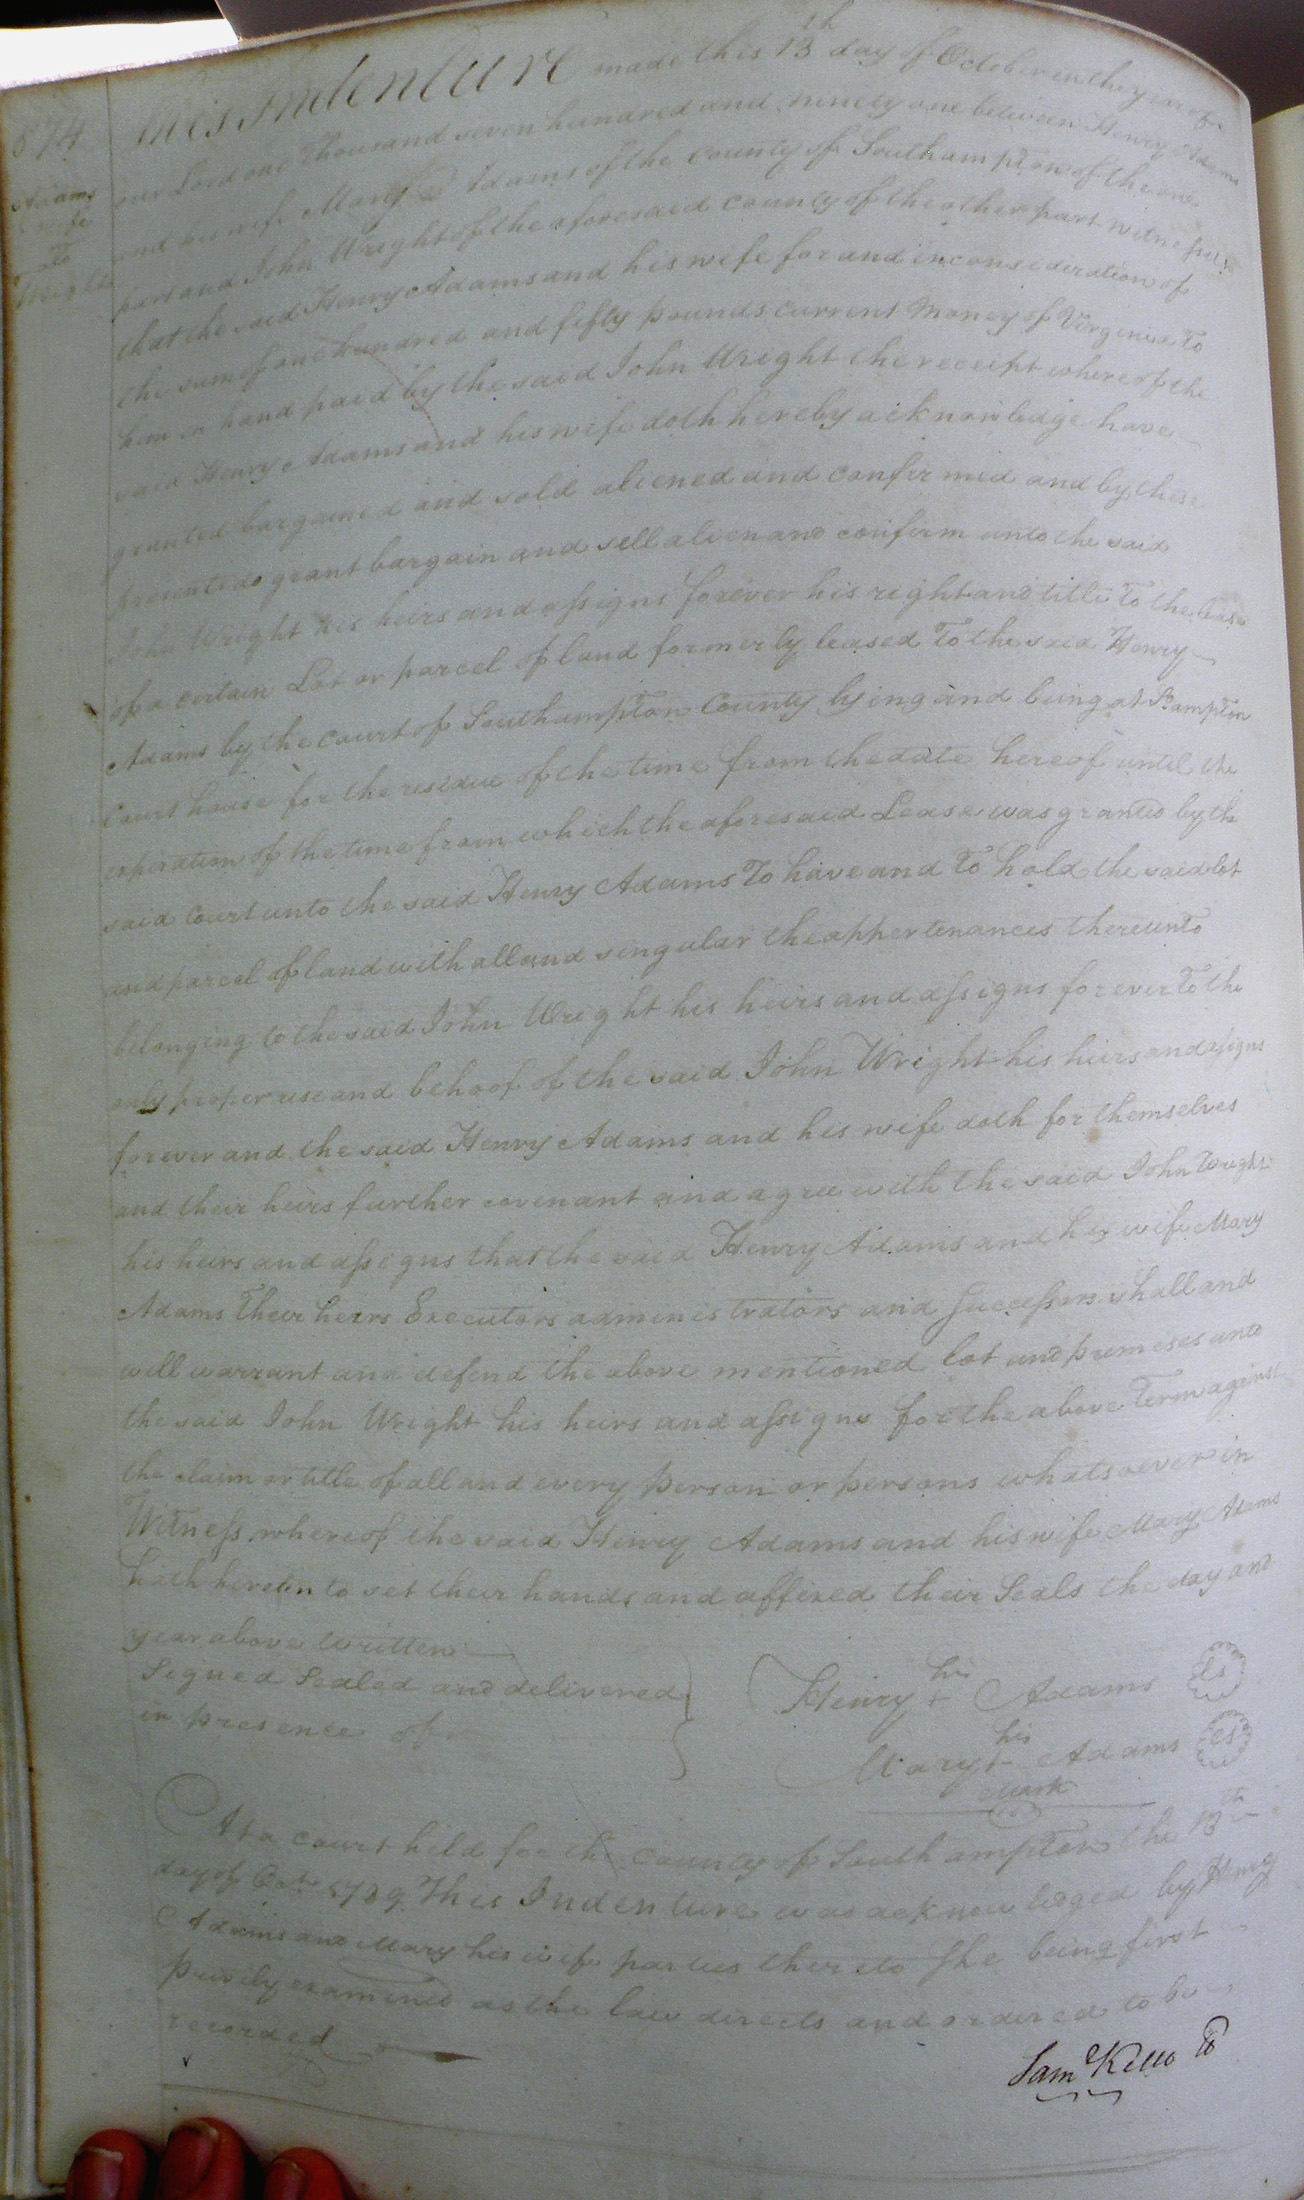 874
Adams
& wife
To
Wright
This Indenture made this 13th day of October in the year of
our Lord one Thousand seven hundred and ninety one between Henry Adams
and his wife Mary Adams of the County of Southampton of the one
part and John Wright of the aforesaid county of the other part witnesseth
that the said Henry Adams and his wife for and in consideration of
the sum of one hundred and fifty pounds current Money of Virginia To
him in hand paid by the said John Wright the receipt whereof the
said Henry Adams and his wife doth hereby acknowledge have
granted bargained and sold aliened and confirmed and by these
presents do grant bargain and sell alien and confirm unto the said
John Wright his heirs and assigns forever his right and title To the lease
of a certain Lot or parcel of land formerly leased To the said Henry
Adams by the court of Southampton County lying and being at S:ampton
Court house for the residue of the time from the date hereof until the
experation of the time from which the aforesaid Lease was granted by the
said Court unto the said Henry Adams To have and To hold the said lot
and parcel of land with all and singular the appertenances thereunto
belonging to the said John Wright his heirs and assigns forever To the
only proper use and behoof of the said John Wright his heirs and assigns
forever and the said Henry Adams and his wife doth for themselves
and their heirs further covenant and agree with the said John Wright
his heirs and assigns that the said Henry Adams and his wife Mary
Adams Their heirs Executors administrators and Successors shall and
will warrant and defend the above mentioned lot and premeses unto
the said John Wright his heirs and assigns for the above Term against
the claim or title of all and every person or persons whatsoever in
Witness whereof the said Henry Adams and his wife Mary Adams
hath hereunto set their hands and affixed their Seals the day and
year above written
Signed Sealed and delivered
in presence of
his
Henry + Adams ls
his
Mary + Adams ls
Mark
At a court held for the County of Southampton the 13th
day of Octr 1789 This Indenture was acknowledged by Henry
Adams and Mary his wife parties thereto She being first
privily examined as the law directs and ordered to be
recorded
Saml Kello